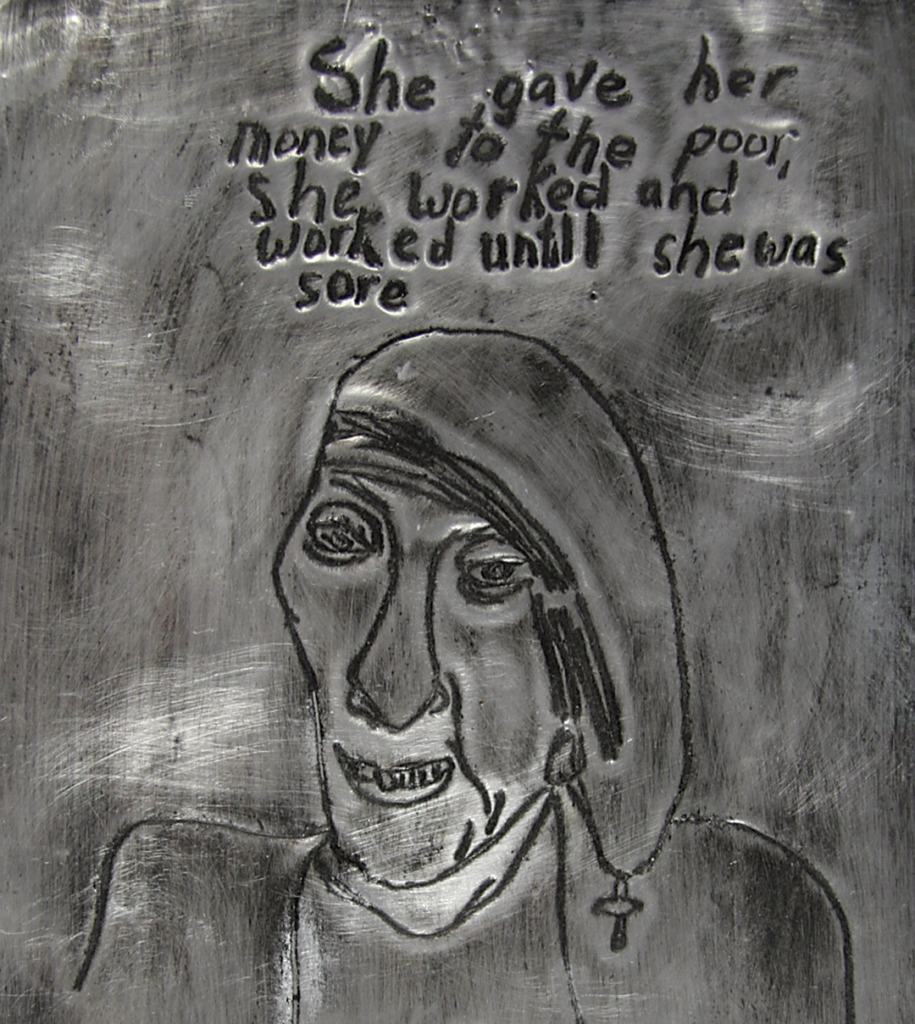 She gave her
money to the poor,
she worked and
worked untill she was
sore